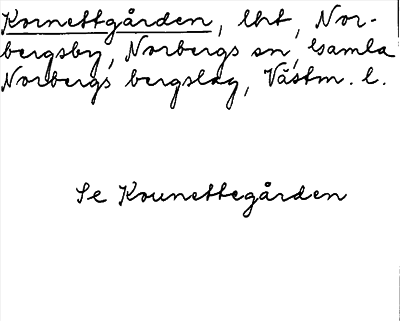 Kornettgården, lht, Nor-
bergsby, Norbergs sn, Gamla
Norbergs bergslag, Västm. l.
Se Kounettegården